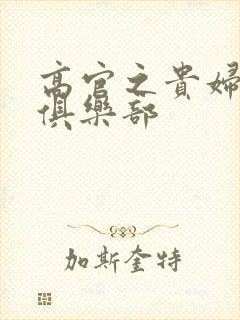 高官之貴婦
俱樂部
加斯奎特